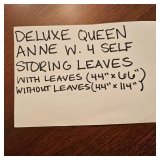 DELUXE QUEEN
ANNE W. 4 SELF
STORING LEAVES
WITH LEAVES (44"x66")
WITHOUT LEAVES (44"x114")